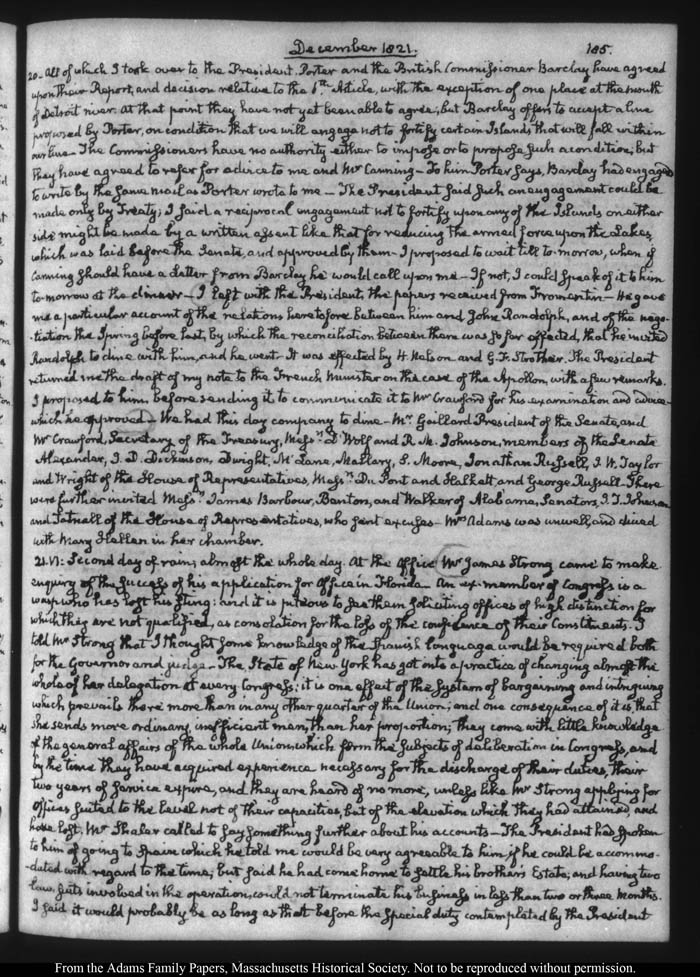 December 1821.
185.
20- All of which I took over to the President. Porter and the British Commissioner Barclay have agreed
upon their Report, and decision relative to the 6th Article, with the exception of one place at the mouth
of Detroit river. At that point they have not yet been able to agree; but Barclay offers to accept a line
proposed by Porter, on condition that we will engage not to fortify certain Islands that will fall within
our line. The Commissioners have no authority either to impose or to propose such a condition; but
they have agreed to refer for advice to me and Mr Canning- To him Porter says, Barclay had engaged
to write by the same mail as Porter wrote to me- The President said such an engagement could be
made only by Treaty; I said a reciprocal engagement not to fortify upon any of the Islands on either
side might be made by a written assent like that for reducing the armed force upon the Lakes,
which was laid before the Senate and approved by them- I proposed to wait till to-morrow, when if
Canning should have a letter from Barclay he would call upon me- If not, I could speak of it to him
to-morrow at the dinner- I left with the President, the papers received from Fromentin- He gave
me a particular account of the relations heretofore between him and John Randolph, and of the nego-
tiation the Spring before last, by which the reconciliation between them was so far effected, that he invited
Randolph to dine with him, and he went. It was effected by H. Nelson and G. F. Strother. The President
returned me the draft of my note to the French Minister on the case of the Apollon, with a few remarks.
I proposed to him before sending it to communicate it to Mr Crawford for his examination and advice-
which he approved- We had this day company to dine- Mr Gaillard President of the Senate, and
Mr Crawford, Secretary of the Treasury, Messrs D'Wolf and R. M. Johnson, members of the Senate
Alexander, J. D. Dickinson, Dwight, McLane, Mallary, S. Moore, Jonathan Russell, J. W. Taylor
and Wright of the House of Representatives, Messrs Du Pont and Halkett and George Russell- There
were further invited Messrs James Barbour, Benton, and Walker of Alabama, Senators, J. T. Johnson
and Tatnall of the House of Representatives, who sent excuses- Mrs Adams was unwell, and dined
with Mary Hellen in her chamber.
21. VI: Second day of rain; almost the whole day. At the Office Mr James Strong came to make
enquiry of the success of his application for Office in Florida- An ex-member of Congress is a
wasp who has lost his sting: and it is piteous to see them soliciting offices of high distinction for
which they are not qualified, as consolation for the loss of the confidence of their Constituents- I
told Mr Strong that I thought some knowledge of the Spanish language would be required both
for the Governor and judge- The State of New York has got into a practice of changing almost the
whole of her delegation at every Congress; it is one effect of the system of bargaining and intriguing
which prevails there more than in any other quarter of the Union; and one consequence of it is, that
she sends more ordinary, inefficient men, than her proportion; they come with little knowledge
of the general affairs of the whole Union which form the subjects of deliberation in Congress, and
by the time they have acquired experience necessary for the discharge of their duties, their
two years of service expire, and they are heard of no more, unless like Mr Strong applying for
Offices suited to the level not of their capacities, but of the elevation which they had attained and
have lost. Mr Shaler called to say something further about his accounts- The President had spoken
to him of going to Spain which he told me would be very agreeable to him if he could be accommo-
-dated with regard to the time; but said he had come home to settle his brother's Estate; and having two
law-suits involved in the operation, could not terminate his business in less than two or three months.
I said it would probably be as long as that before the special duty contemplated by the President
From the Adams Family Papers, Massachusetts Historical Society. Not to be reproduced without permission.